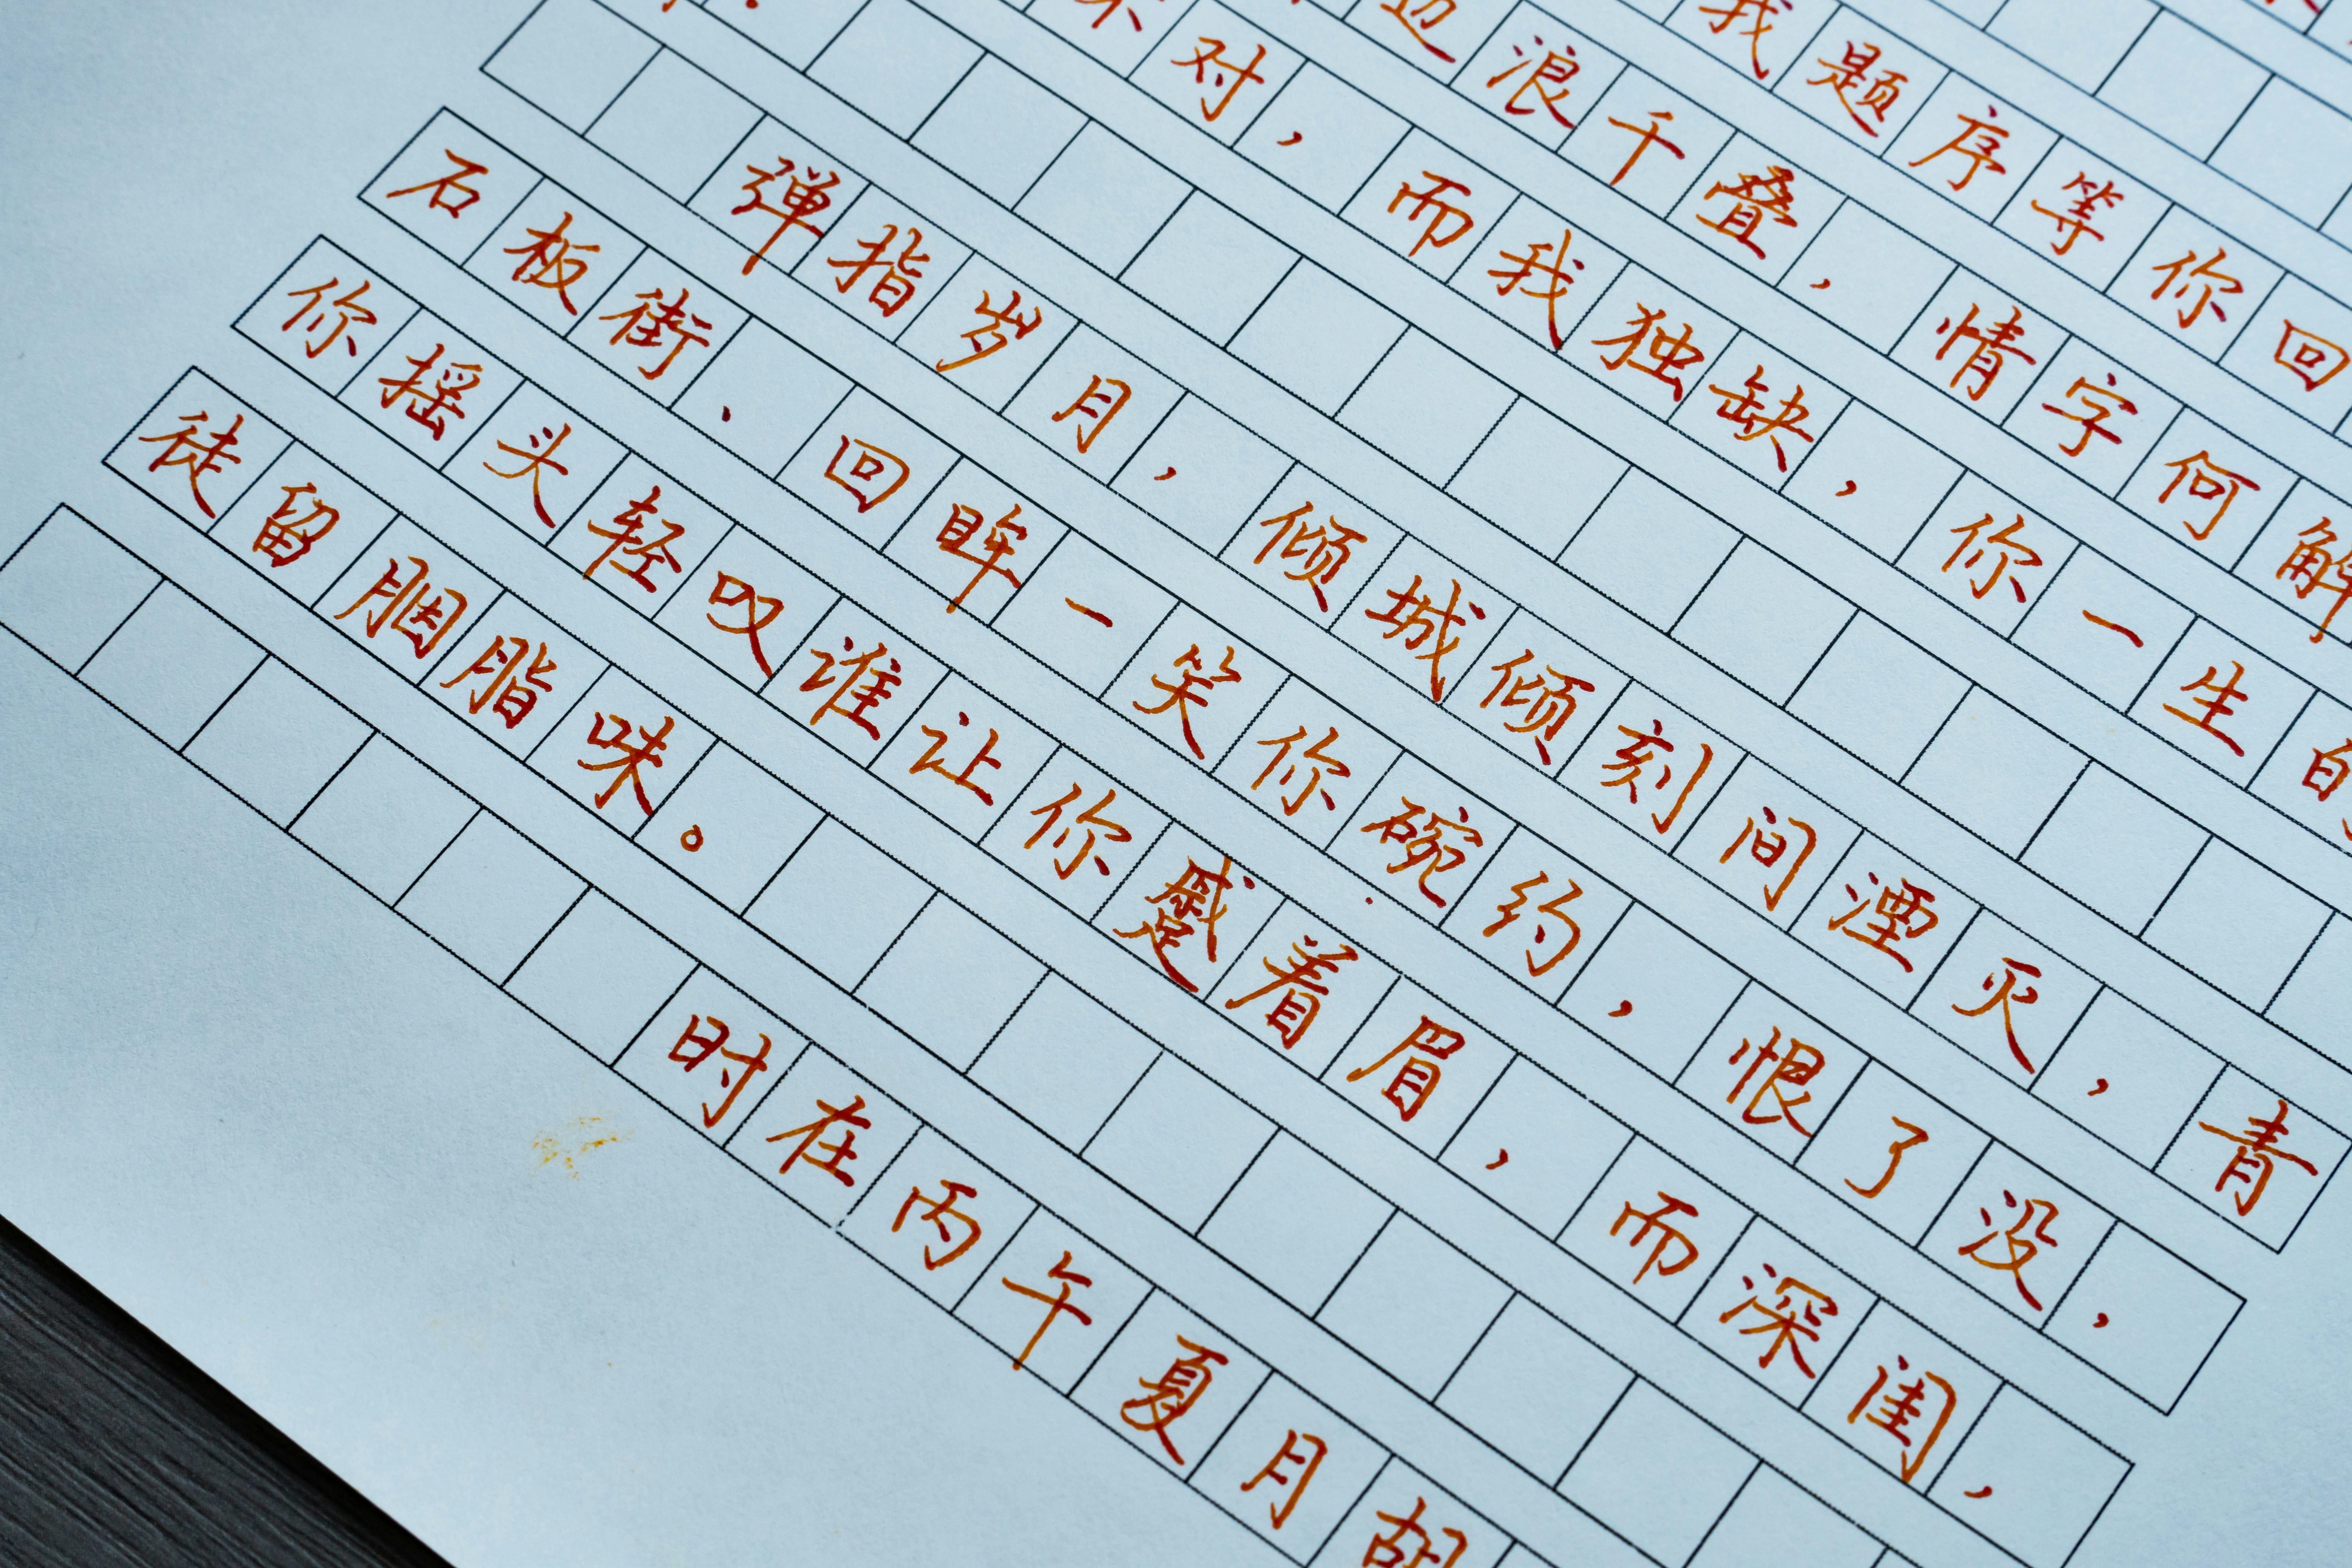 我题序等你回
边浪千叠，情字何解
对，而我独缺，你一生的
弹指岁月，倾城倾刻间湮灭，青
石板街、回眸一笑你碗约，恨了没，
你摇头轻叹谁让你蹙着眉，而深闺，
徒留胭脂味。
时在丙午夏月胡